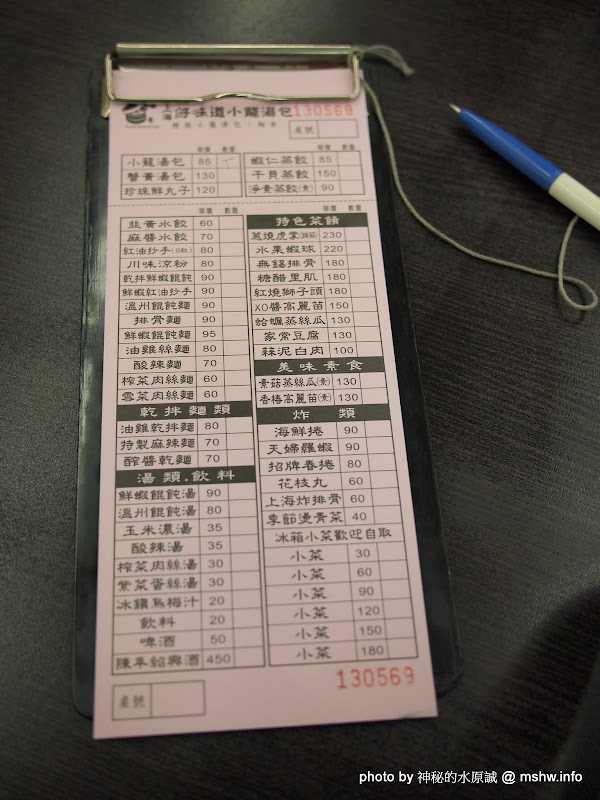 上海 好味道小籠湯包 130569
桌號
單價 數量 單價 數量
小籠湯包 85 蝦仁蒸餃 85
蟹黃湯包 130 干貝蒸餃 150
珍珠鮮丸子 120 淨素蒸餃(素) 90
單價 數量 單價 數量
韭黃水餃 60
麻醬水餃 70
紅油抄手 80
川味涼粉 80
乾拌鮮蝦餛飩 90
鮮蝦紅油抄手 90
溫州餛飩麵 90
排骨麵 90
鮮蝦餛飩麵 95
油雞絲麵 80
酸辣麵 70
榨菜肉絲麵 60
雪菜肉絲麵 60
乾拌麵類
油雞乾拌麵 80
特製麻辣麵 70
醡醬乾麵 70
湯類.飲料
鮮蝦餛飩湯 90
溫州餛飩湯 80
玉米濃湯 35
酸辣湯 35
榨菜肉絲湯 30
紫菜蛋絲湯 30
冰鎮烏梅汁 20
飲料 20
啤酒 50
陳年紹興酒 450
特色菜餚
蔥燒虎掌 230
水果蝦球 220
無錫排骨 180
糖醋里肌 180
紅燒獅子頭 180
XO醬高麗苗 150
蛤蠣蒸絲瓜 130
家常豆腐 130
蒜泥白肉 100
美味素食
素菇蒸絲瓜(素) 130
香椿高麗苗(素) 130
炸類
海鮮捲 90
天婦羅蝦 90
招牌春捲 80
花枝丸 60
上海炸排骨 60
季節燙青菜 40
冰箱小菜歡迎自取
小菜 30
小菜 60
小菜 90
小菜 120
小菜 150
小菜 180
130569
桌號
photo by 神秘的水原誠 @ mshw.info